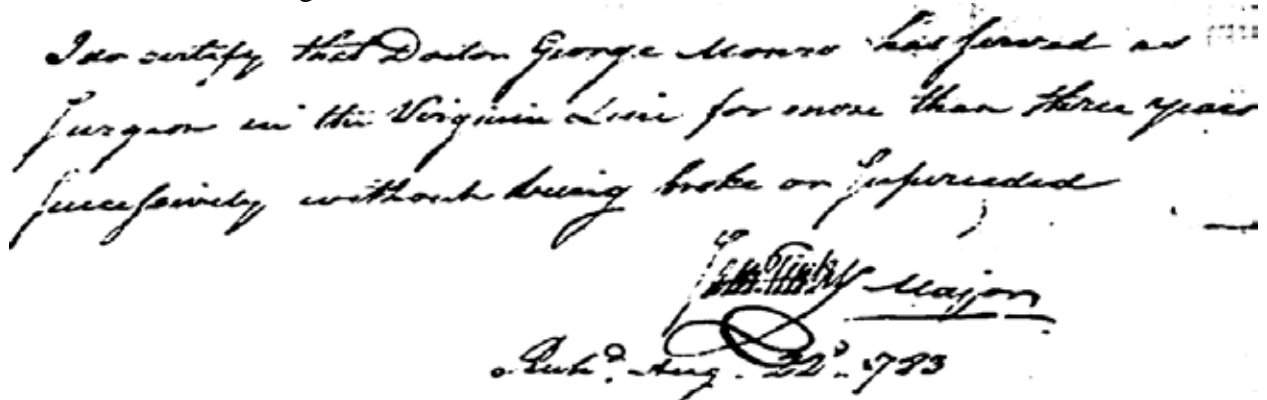 I do certify that Doctor George Monro has served as
Surgeon in the Virginia Line for more than three years
successively without being broke or Superseded
Major
Rich.d Aug. 22d. 1783